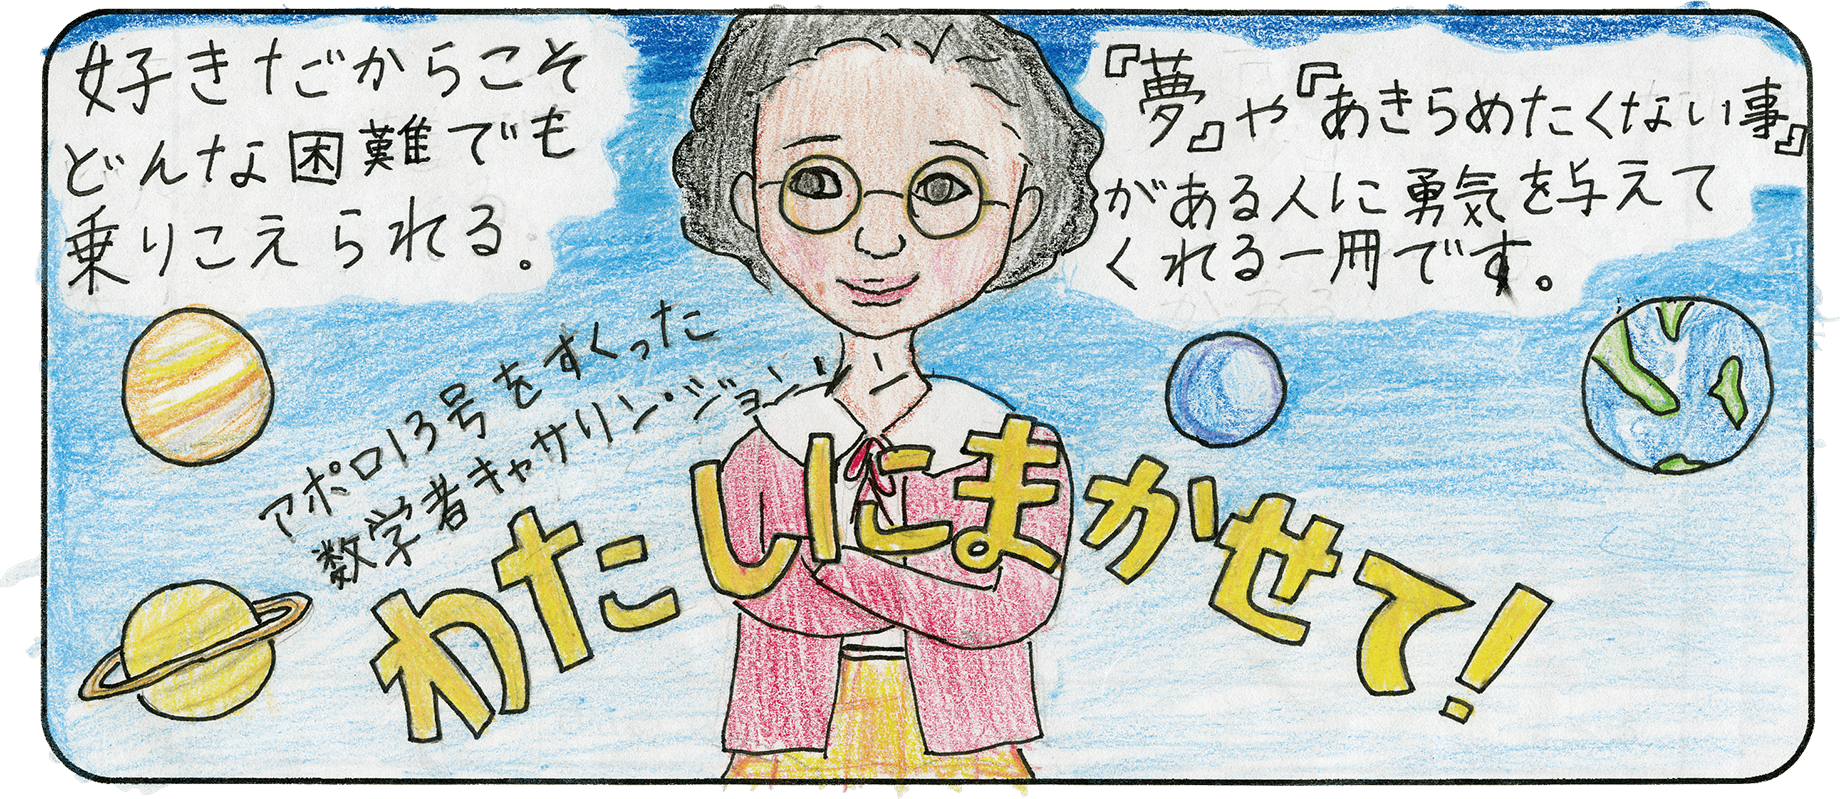 好きだからこそ
どんな困難でも
乗りこえられる。
『夢』や『あきらめたくない事』
がある人に勇気を与えて
くれる一冊です。
アポロ13号をすくった
数学者キャサリン・ジョンソン
わたしにまかせて!